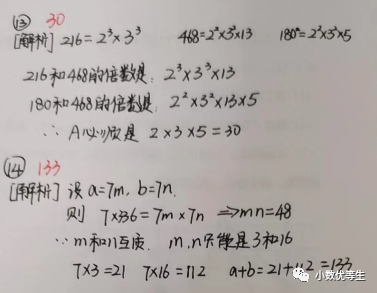 ⑬ 30
[解析] 216=2³×3³ 468=2²×3²×13 180=2²×3²×5
216和468的倍数是: 2³×3³×13
180和468的倍数是: 2²×3²×13×5
∴ A必须是 2×3×5=30
⑭ 133
[解析] 设 a=7m, b=7n.
则 7×336=7m×7n ⇒mn=48
∵ m和n互质. m,n只能是3和16
7×3=21 7×16=112 a+b=21+112=133
小数优等生